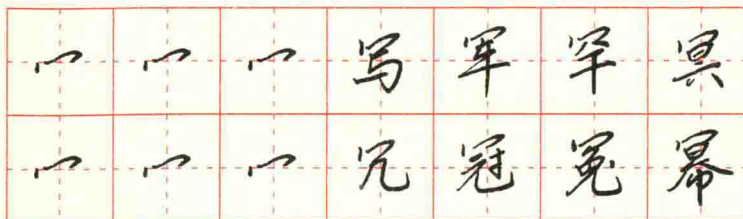 冖冖冖写军罕冥
冖冖冖冗冠冤幂